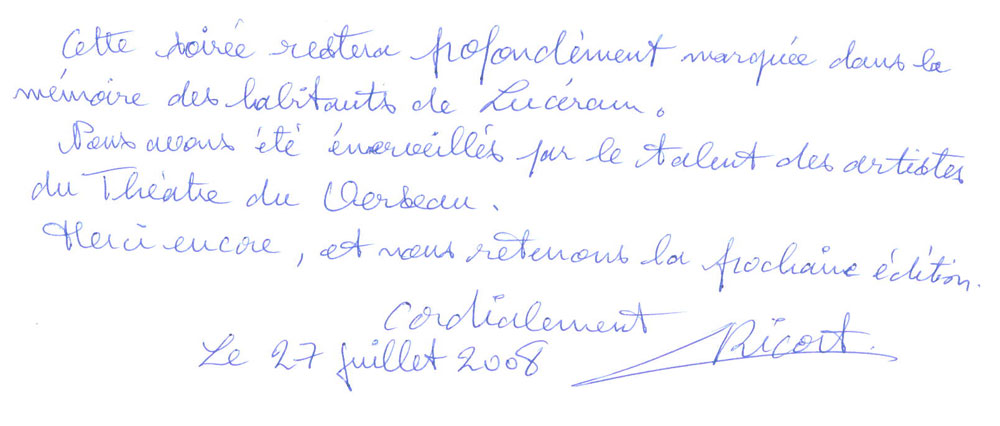 Cette soirée restera profondément marquée dans la
mémoire des habitants de Lucéram.
Nous avons été émerveillés par le talent des artistes
du Théâtre du Verseau.
Merci encore, et nous retenons la prochaine édition.
Cordialement
Le 27 juillet 2008 Ricort.